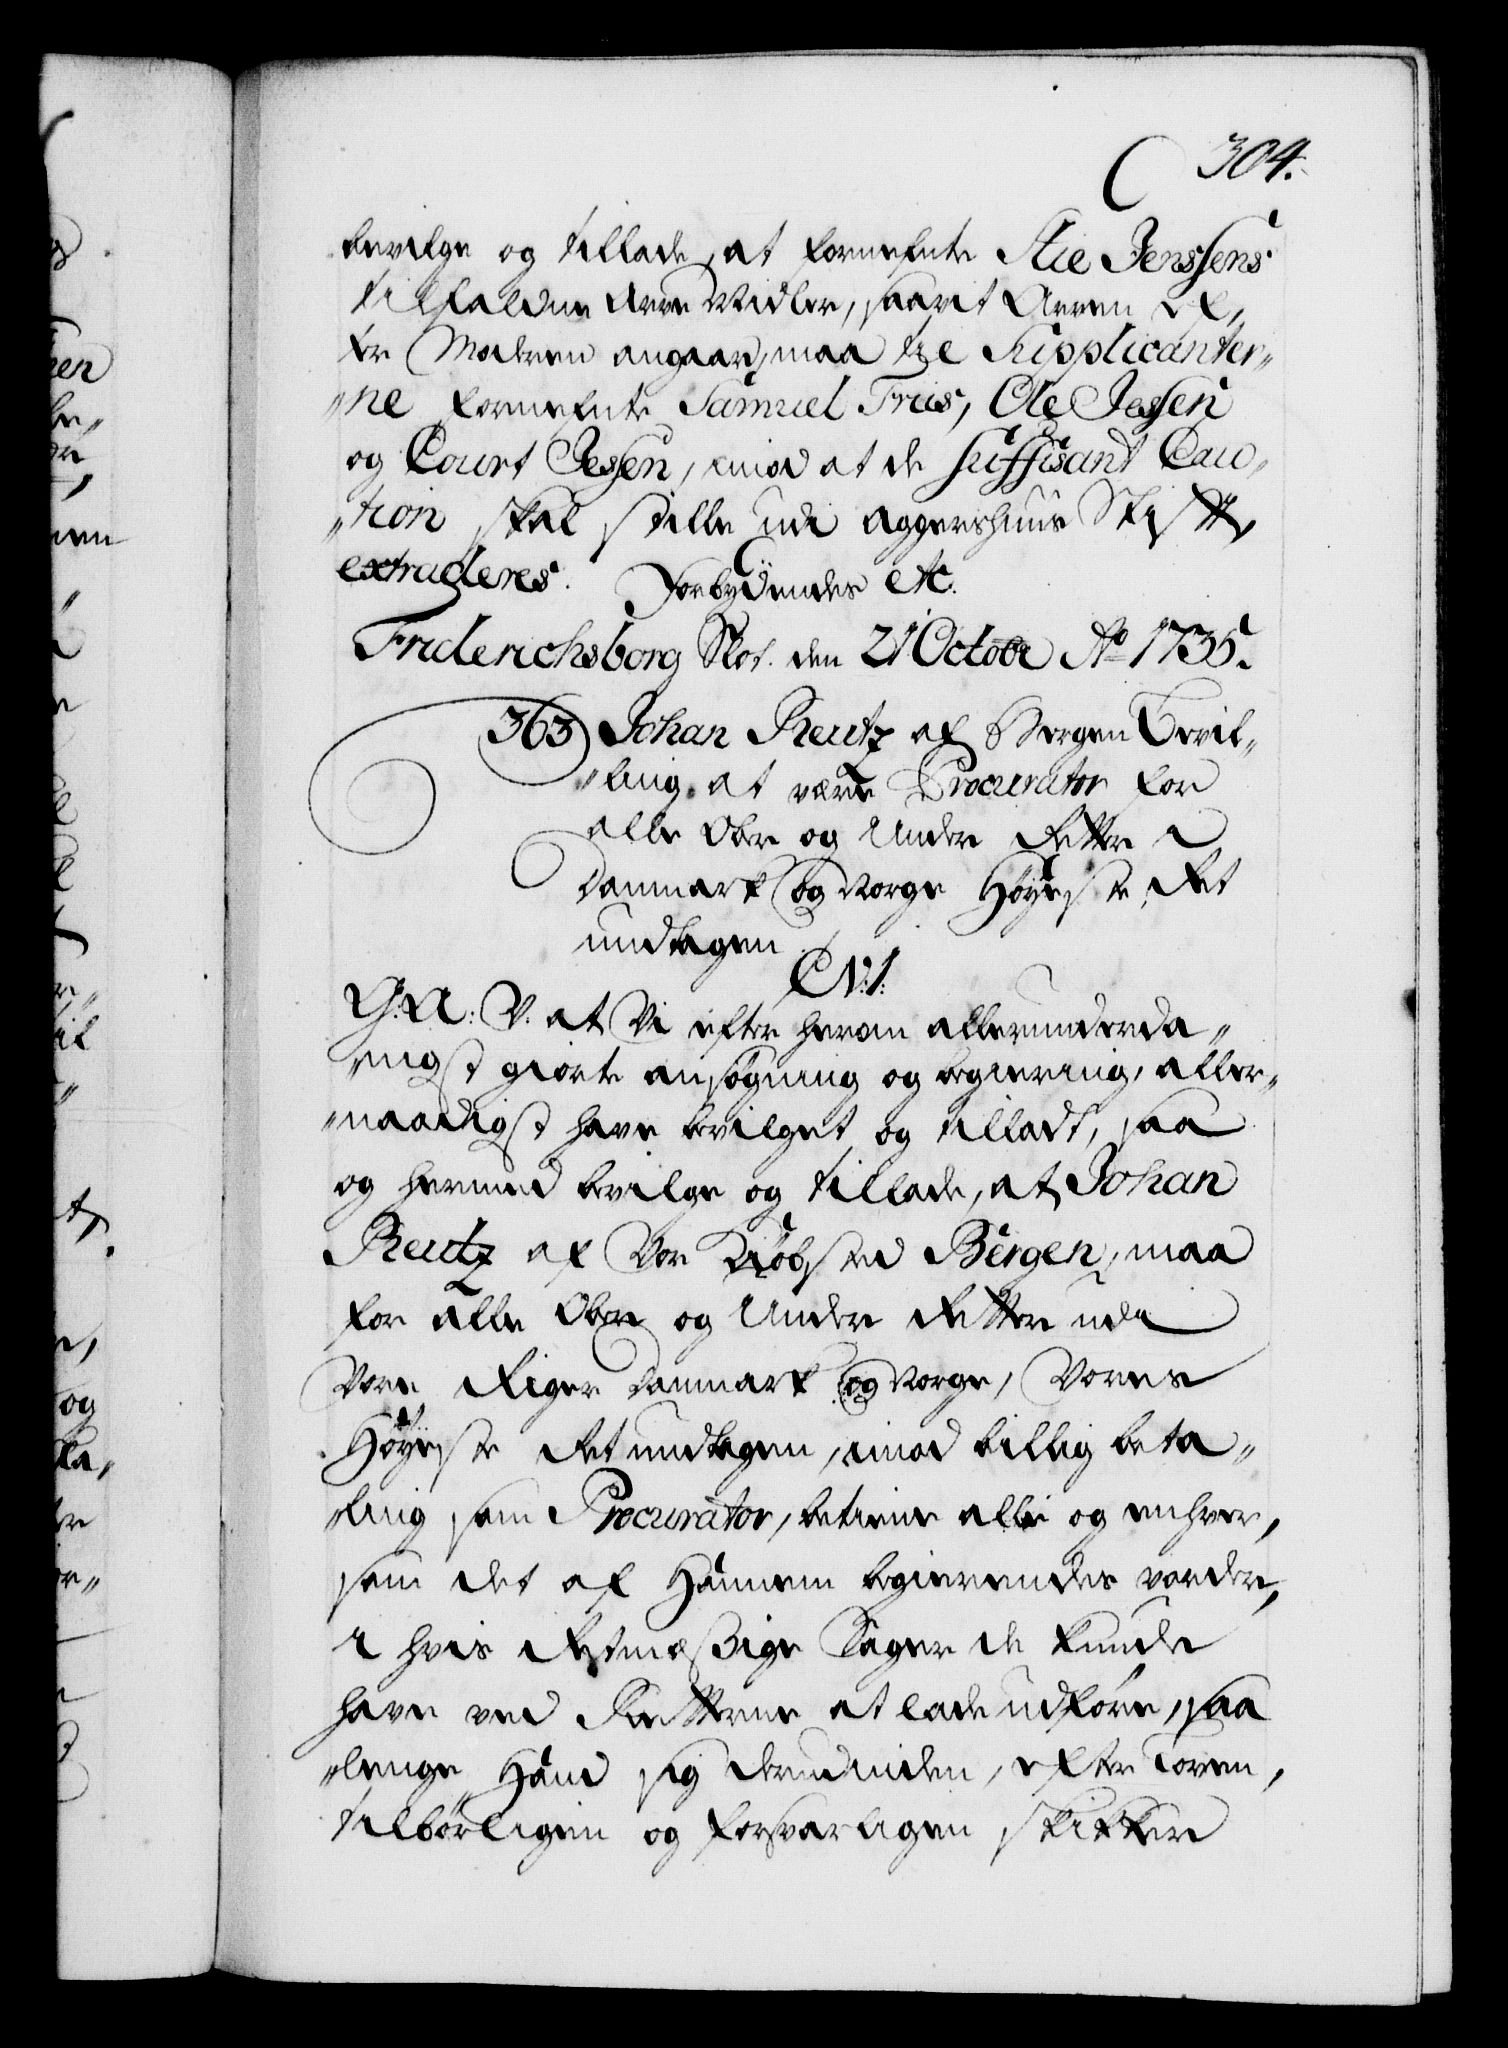 304.
bevilge og tillade, at fornefnte Stie Jenssens
tilfaldne Arve Midler, saavit Arven ef„
ter Moderen angaar, maa til Supplicanter„
„ne fornefnte Samuel Friis, Ole Jessen
og Court Jessen, imod at de suffisant Cau„
„tion skal stille udi Aggershuus Stift,
extraderes. Forbydendes etc.
Friderichsborg Slot. den 21 Octobr Ao 1735.
363 Johan Reutz af Bergen Bevil„
„ling at være Procurator for
alle Over og Under Retter i
Danmark og Norge Høyeste Ret
undtagen
C N: 1:
G. A: V. at Vi efter herom allerunderda„
„nigst giorte ansøgning og begiering, aller„
„naadigst have bevilget og tilladt, saa
og hermed bevilge og tillade, at Johan
Reutz af Vor Kiøbsted Bergen, maa
for alle Over og Under Retter udi
Vore Riger Danmark og Norge, Vores
Høyeste Ret undtagen, imod billig beta„
„ling som Procurator, betiene alle og enhver,
som det af Hannem begierendes vorder,
i hvis Retmæssige Sager de kunde
have ved Retterne at lade udføre, saa
„lenge Hand sig derudinden, efter Loven,
tilbørligen og forsvarligen skikker